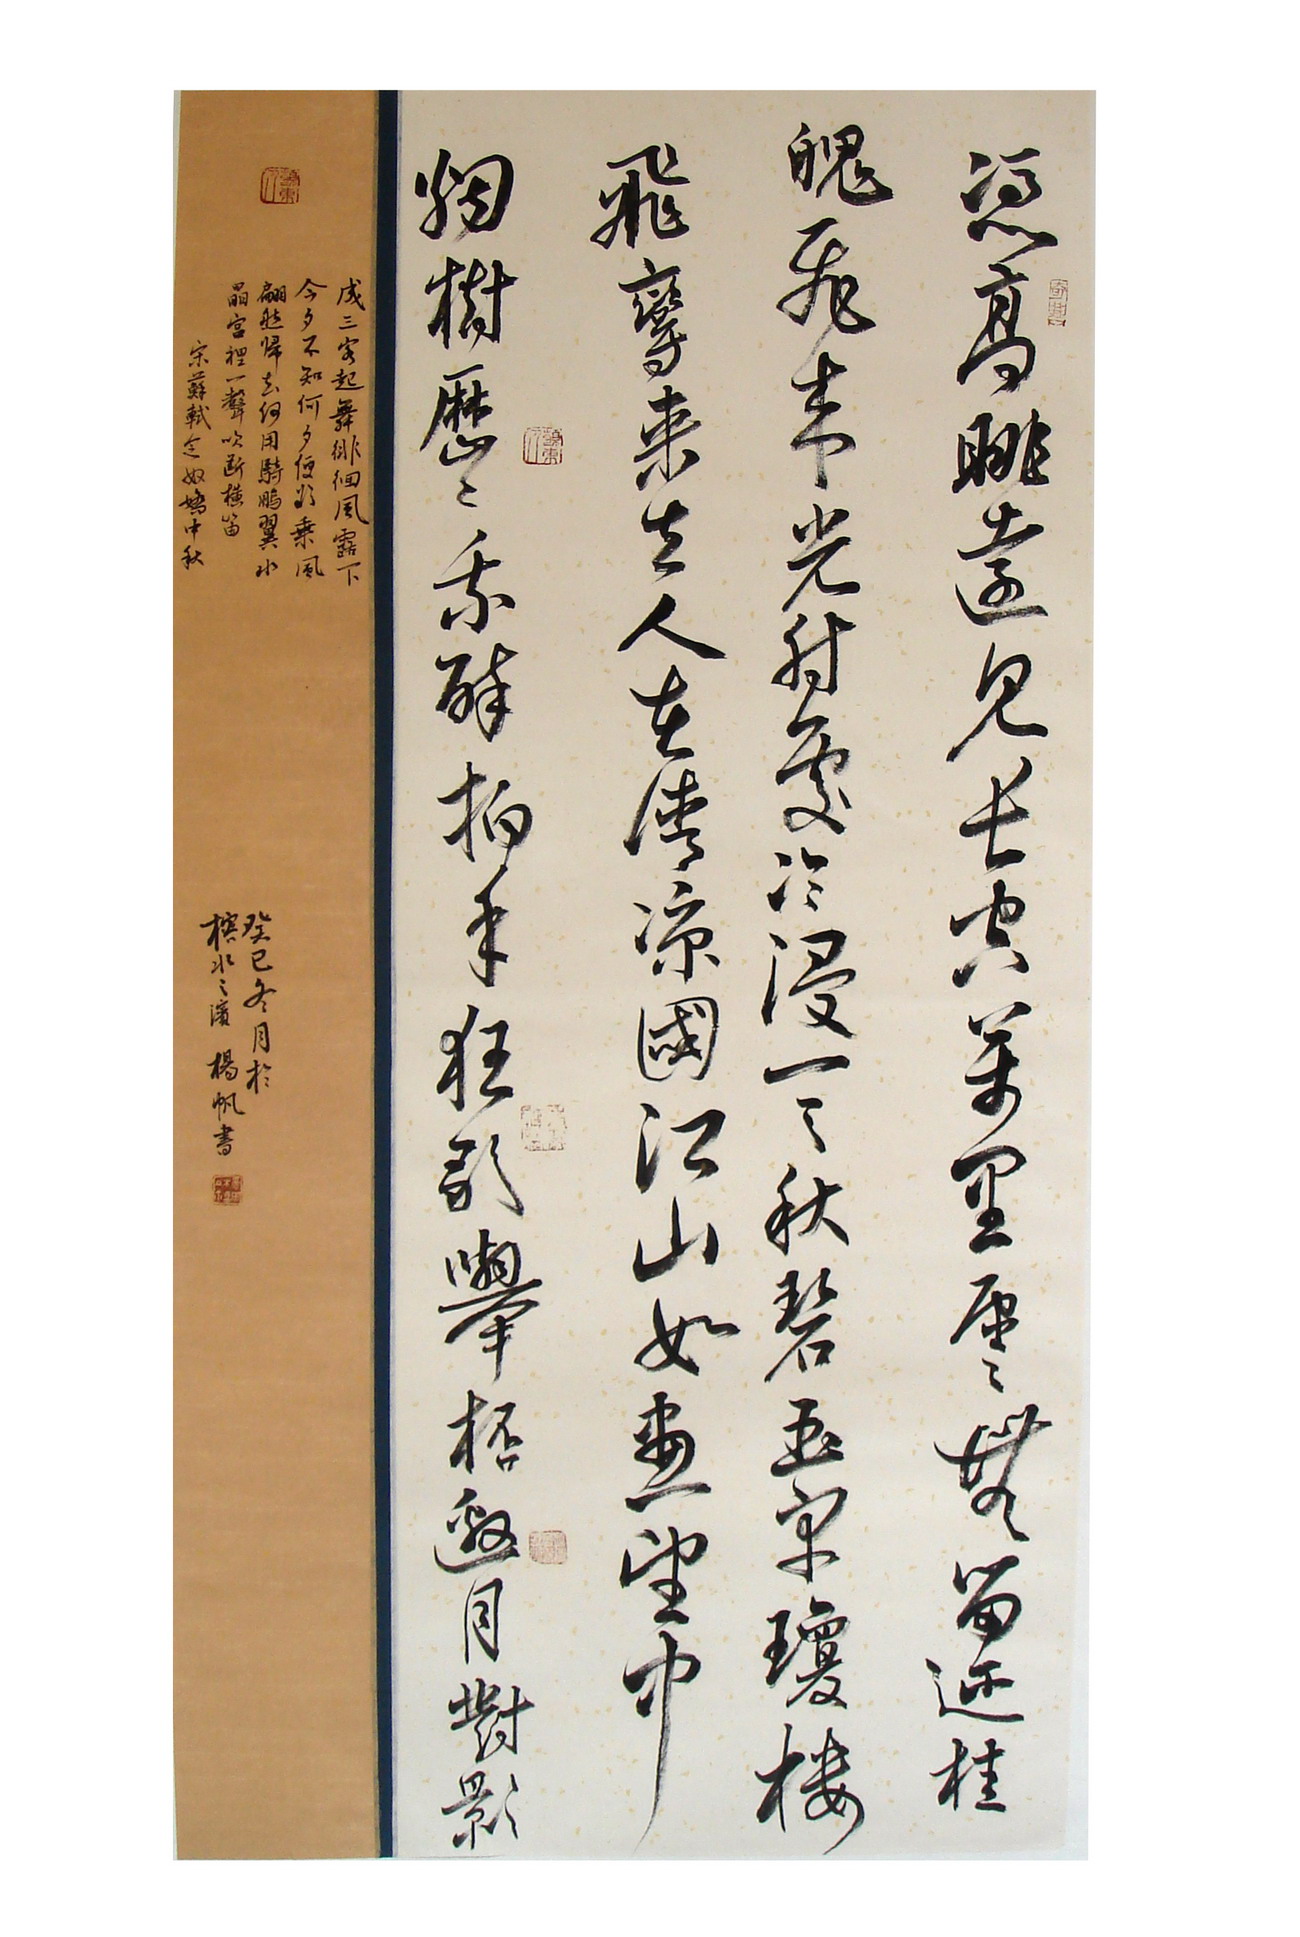 憑高眺遠見長空萬里雲〻無留迹桂
魄飛來光射處冷浸一天秋碧玉宇瓊樓
飛鸞來去人在清涼國江山如畫望中
烟樹歷〻我醉拍手狂歌舉杯邀月對影
成三客起舞徘徊風露下
今夕不知何夕便欲乘風
翩然歸去何用騎鵬翼水
晶宮裡一聲吹斷橫笛
宋蘇軾念奴嬌中秋
癸巳冬月於
水之濱楊帆書